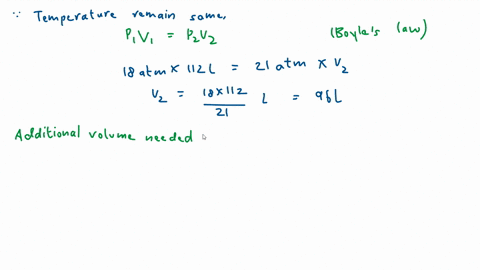 ∵ Temperature remain same,
P₁V₁ = P₂V₂ (Boyle's law)
18 atm × 112 L = 21 atm × V₂
V₂ = 18×112/21 L = 96L
Additional volume needed